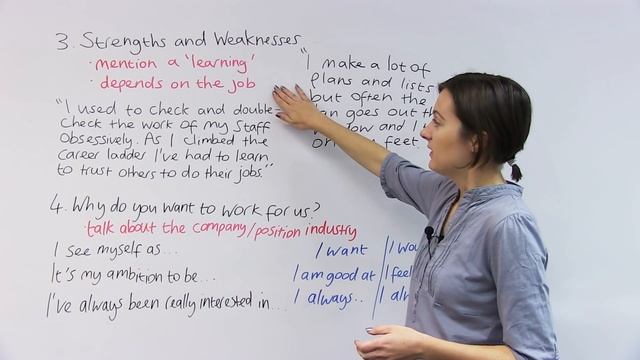 3. Strengths and Weaknesses
· mention a 'learning'
· depends on the job
"I used to check and double
check the work of my staff
obsessively. As I climbed the
career ladder I've had to learn
to trust others to do their jobs."
"I make a lot of
plans and lists
but often the
goes out th
and I
feet,
4. Why do you want to work for us?
· talk about the company/position industry
I see myself as...
It's my ambition to be...
I've always been really interested in...
I want
I am good at
I always..
I wou
I feel
I al